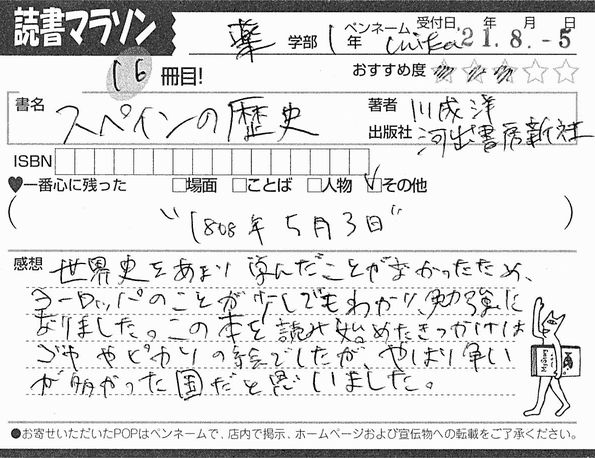 読書マラソン
薬 学部 1年 ペンネーム chika 受付日 21年8.月-5日
16 冊目! おすすめ度
書名 スペインの歴史 著者 川成洋
出版社 河出書房新社
ISBN
♥一番心に残った □場面 □ことば □人物 □その他
( "1808年5月3日" )
感想 世界史をあまり学んだことがなかったため、
ヨーロッパのことが少しでもわかり、勉強に
なりました。この本を読み始めたきっかけは
ゴヤやピカソの絵でしたが、やはり争い
が多かった国だと思いました。
●お寄せいただいたPOPはペンネームで、店内で掲示、ホームページおよび宣伝物への転載をご了承ください。